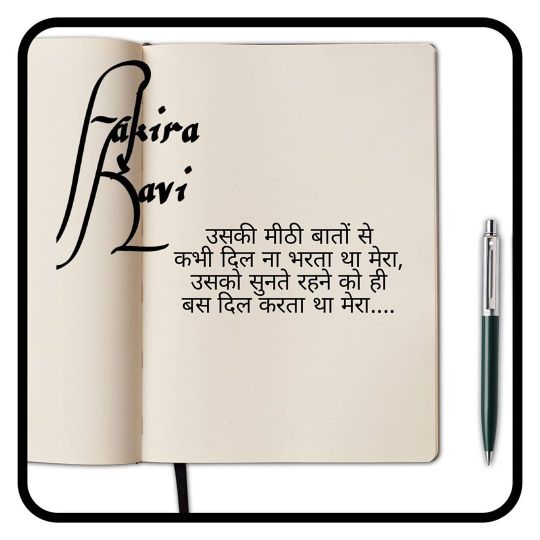 Fakira
Ravi
उसकी मीठी बातों से
कभी दिल ना भरता था मेरा,
उसको सुनते रहने को ही
बस दिल करता था मेरा....